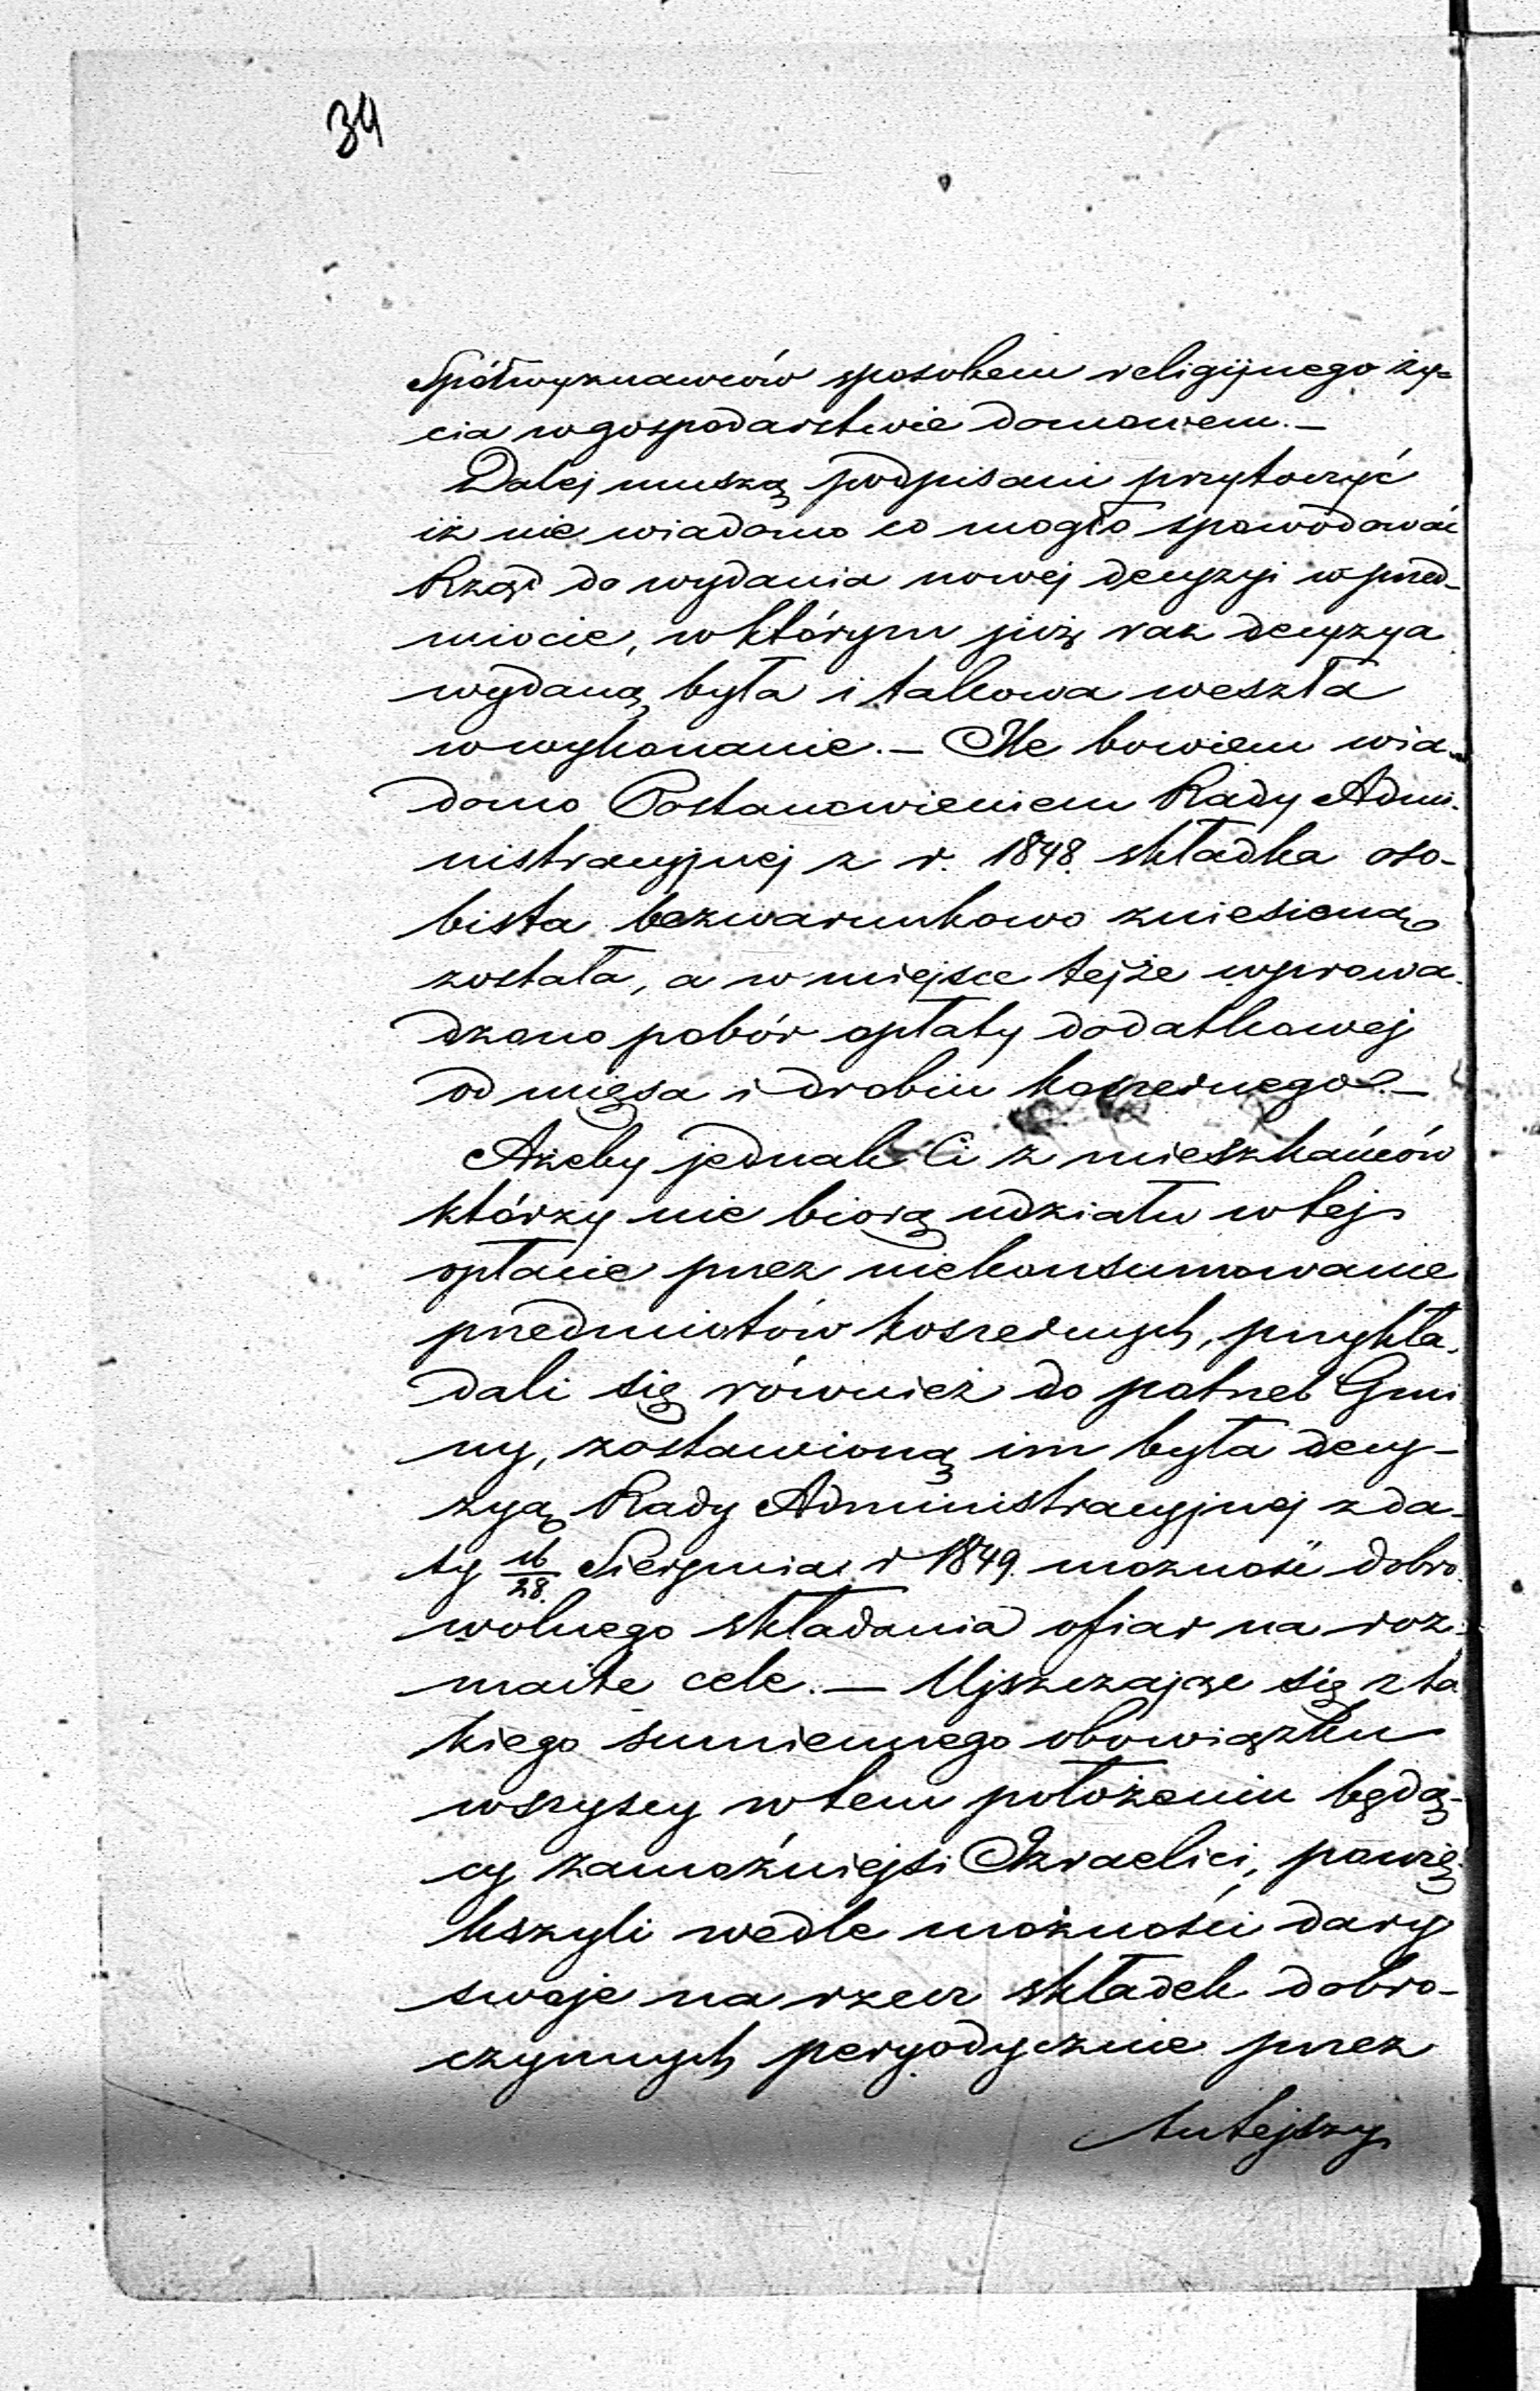 34
Spółwyznawców sposobem religijnego ży=
cia w gospodarstwie domowem. –
Dalej muszą podpisani przytoczyć
iż nie wiadomo co mogło spowodować
Rząd do wydania nowej decyzyi w przed-
miocie, w którym już raz decyzya
wydaną była i takowa weszła
w wykonanie. – Ile bowiem wia-
domo Postanowieniem Rady Admi-
nistracyjnej z r. 1848. składka oso-
bista bezwarunkowo zniesioną
została, a w miejsce tejże wprowa-
dzono pobór opłaty dodatkowej
od mięsa i drobiu koszernego. –
Ażeby jednak Ci z mieszkańców
którzy nie biorą udziału w tej
opłacie przez niekonsumowanie
przedmiotów koszernych, przykła-
dali się również do potrzeb Gmi
ny, zostawioną im była decy-
zyą Rady Administracyjnej z da-
ty 16/28. Sierpnia r 1849. możność dobro-
wolnego składania ofiar na roz-
maite cele. – Ujszczając się z ta
kiego sumiennego obowiązku
wszyscy w tem położeniu będą-
cy zamożniejsi Izraelici, powię-
kszyli wedle możności dary
swoje na rzecz składek dobro-
czynnych peryodycznie przez
tutejszy